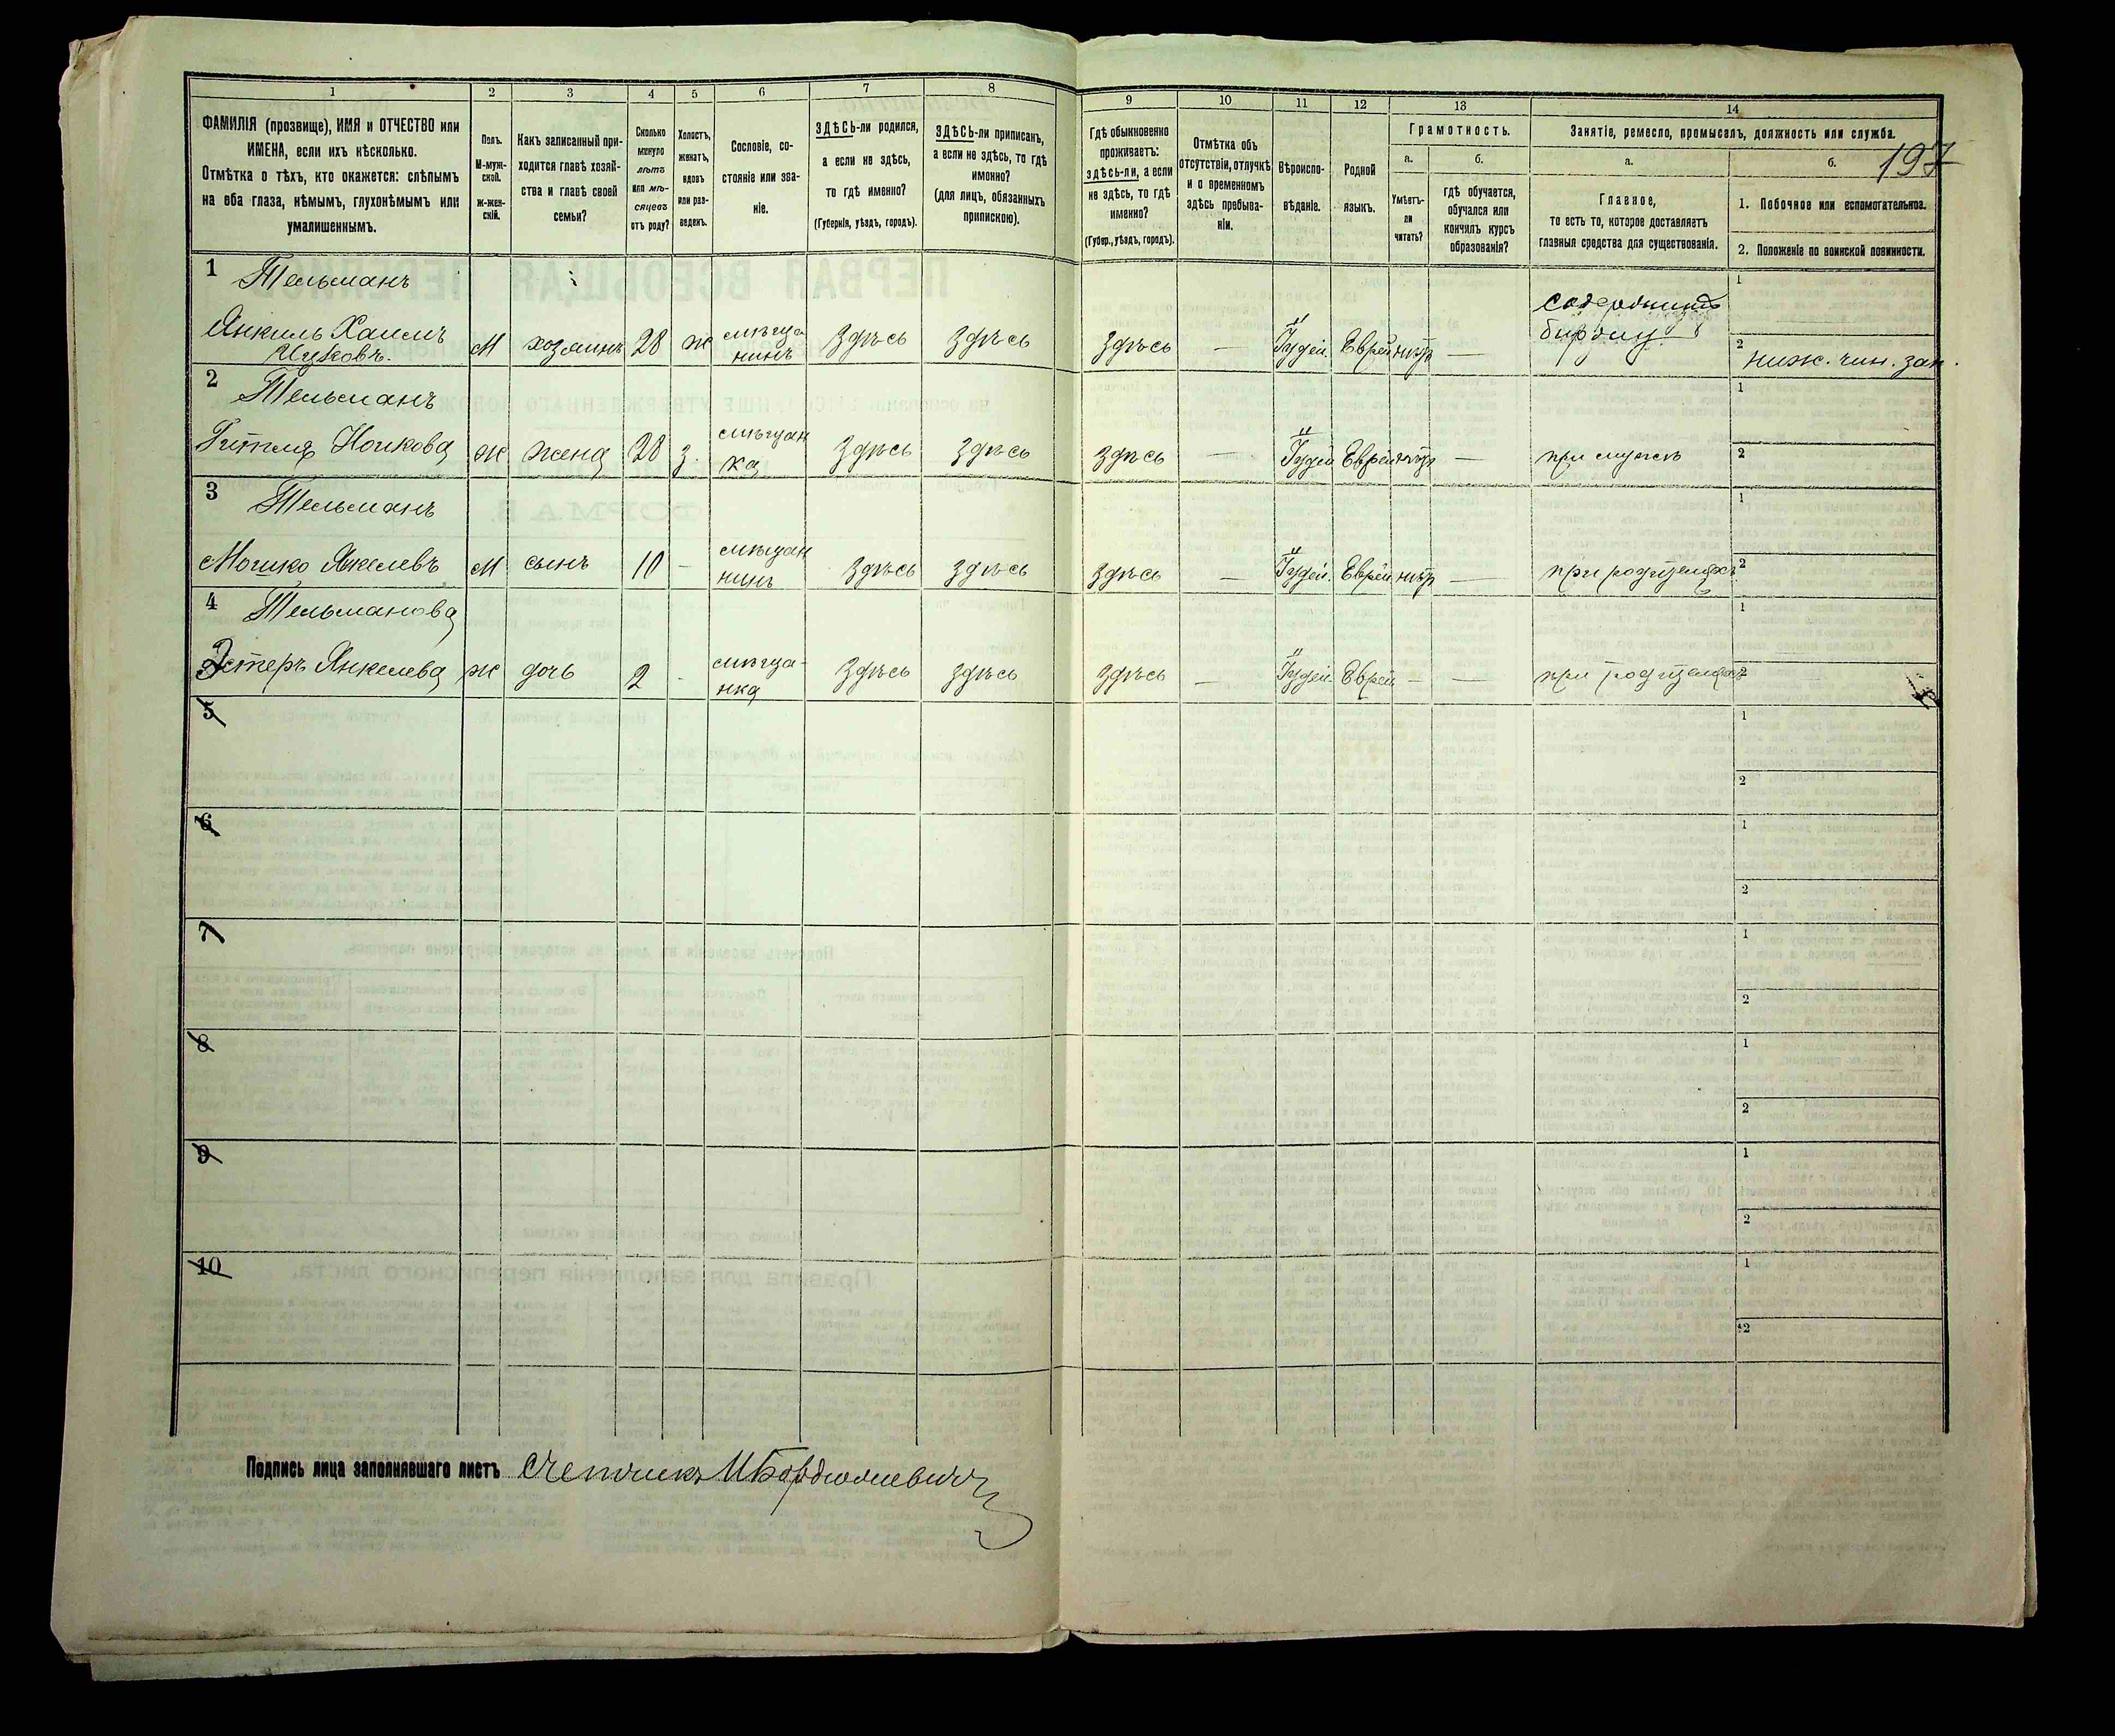 1
2
3
4
5
6
7
8
9
10
11
12
13
14
ФАМИЛІЯ (прозвище), ИМЯ и ОТЧЕСТВО или
ИМЕНА, если ихъ нѣсколько.
Отмѣтка о тѣхъ, кто окажется: слѣпымъ
на оба глаза, нѣмымъ, глухонѣмымъ или
умалишеннымъ.
Полъ.
М-муж-
ской.
Ж-жен-
скій.
Какъ записанный при-
ходится главѣ хозяй-
ства и главѣ своей
семьи?
Сколько
минуло
лѣтъ
или мѣ-
сяцевъ
отъ роду?
Холостъ,
женатъ,
вдовъ
или раз-
веденъ.
Сословіе, со-
стояніе или зва-
ніе.
ЗДѢСЬ-ли родился,
а если не здѣсь,
то гдѣ именно?
(Губернія, уѣздъ, городъ).
ЗДѢСЬ-ли приписанъ,
а если не здѣсь, то гдѣ
именно?
(для лицъ, обязанныхъ
припискою).
Гдѣ обыкновенно
проживаетъ:
здѣсь-ли, а если
не здѣсь, то гдѣ
именно?
(Губер., уѣздъ, городъ).
Отмѣтка объ
отсутствіи, отлучкѣ
и о временномъ
здѣсь пребыва-
ніи.
Вѣроиспо-
вѣданіе.
Родной
языкъ.
Грамотность.
а.
б.
Умѣетъ-
ли
читать?
гдѣ обучается,
обучался или
кончилъ курсъ
образованія?
Занятіе, ремесло, промыселъ, должность или служба.
а.
б.
197
Главное,
то есть то, которое доставляетъ
главныя средства для существованія.
1. Побочное или вспомогательное.
2. Положеніе по воинской повинности.
1 Тельманъ
Янкиль Хаимъ
Ицковъ. М хозяинъ 28 ж мѣща-
нинъ Здѣсь Здѣсь Здѣсь — Іудей. Еврей нѣтъ
1
2 ниж. чин. зап.
2 Тельманъ
Гитля Ношкова ж жена 28 з. мѣщан
ка Здѣсь Здѣсь Здѣсь — Іудей Еврей нѣтъ — при мужѣ
1
2
3 Тельманъ
Мошко Янкелевъ М сынъ 10 - мѣщан
нинъ Здѣсь Здѣсь Здѣсь — Іудей. Еврей нѣтъ — при родителяхъ
1
2
4 Тельманова
Эстеръ Янкелева ж дочь 2 - мѣща-
нка Здѣсь Здѣсь Здѣсь — Іудей. Еврей — — при родителяхъ
1
2
5
1
2
6
1
2
7
1
2
8
1
2
9
1
2
10
1
2
Подпись лица заполнявшаго листъ Счетчикъ